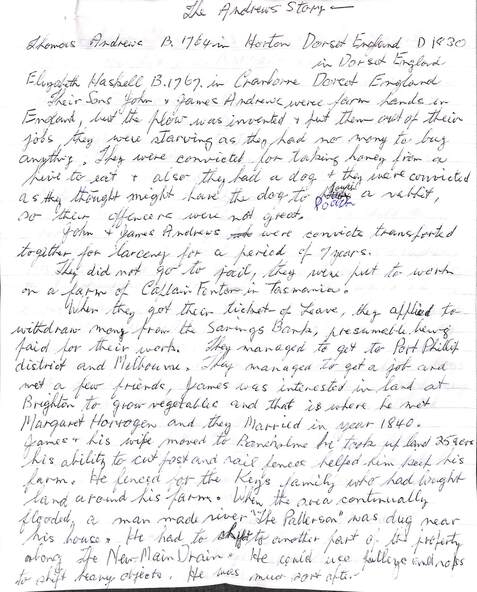 The Andrews Story -
Thomas Andrews B. 1764 in Horton Dorset England D 1830
in Dorset England
Elizabeth Haskell B. 1767. in Cranborne Dorset England
Their Sons John & James Andrews were farm hands in
England, but the plow was invented & put them out of their
jobs, they were starving as they had no money to buy
anything. They were convicted for taking honey from a
hive to eat & also they had a dog & they were convicted
as they thought might have the dog to Poach a rabbit,
so their offences were not great.
John & James Andrews were convicts transported
together for Larceny for a period of 7 years.
They did not go to jail, they were put to work
on a farm of Captain Fenton in Tasmania.
When they got their ticket of Leave, they applied to
withdraw money from the Savings Bank, presumable being
paid for their work. They managed to get to Port Phillip
district and Melbourne. They managed to get a job and
met a few friends, James was interested in land at
Brighton to grow vegetables and that is where he met
Margaret and they Married in year 1840.
James & his wife moved to he took up land 35 acres
his ability to cut post and rail fences helped him keep his
farm. He fenced for the Keys family who had bought
land around his farm. When the area continually
flooded, a man made river "The Patterson" was dug near
his house. He had to shift to another part of the property
along The New Main Drain". He could use pulleys and ropes
to shift heavy objects. He was much sort after